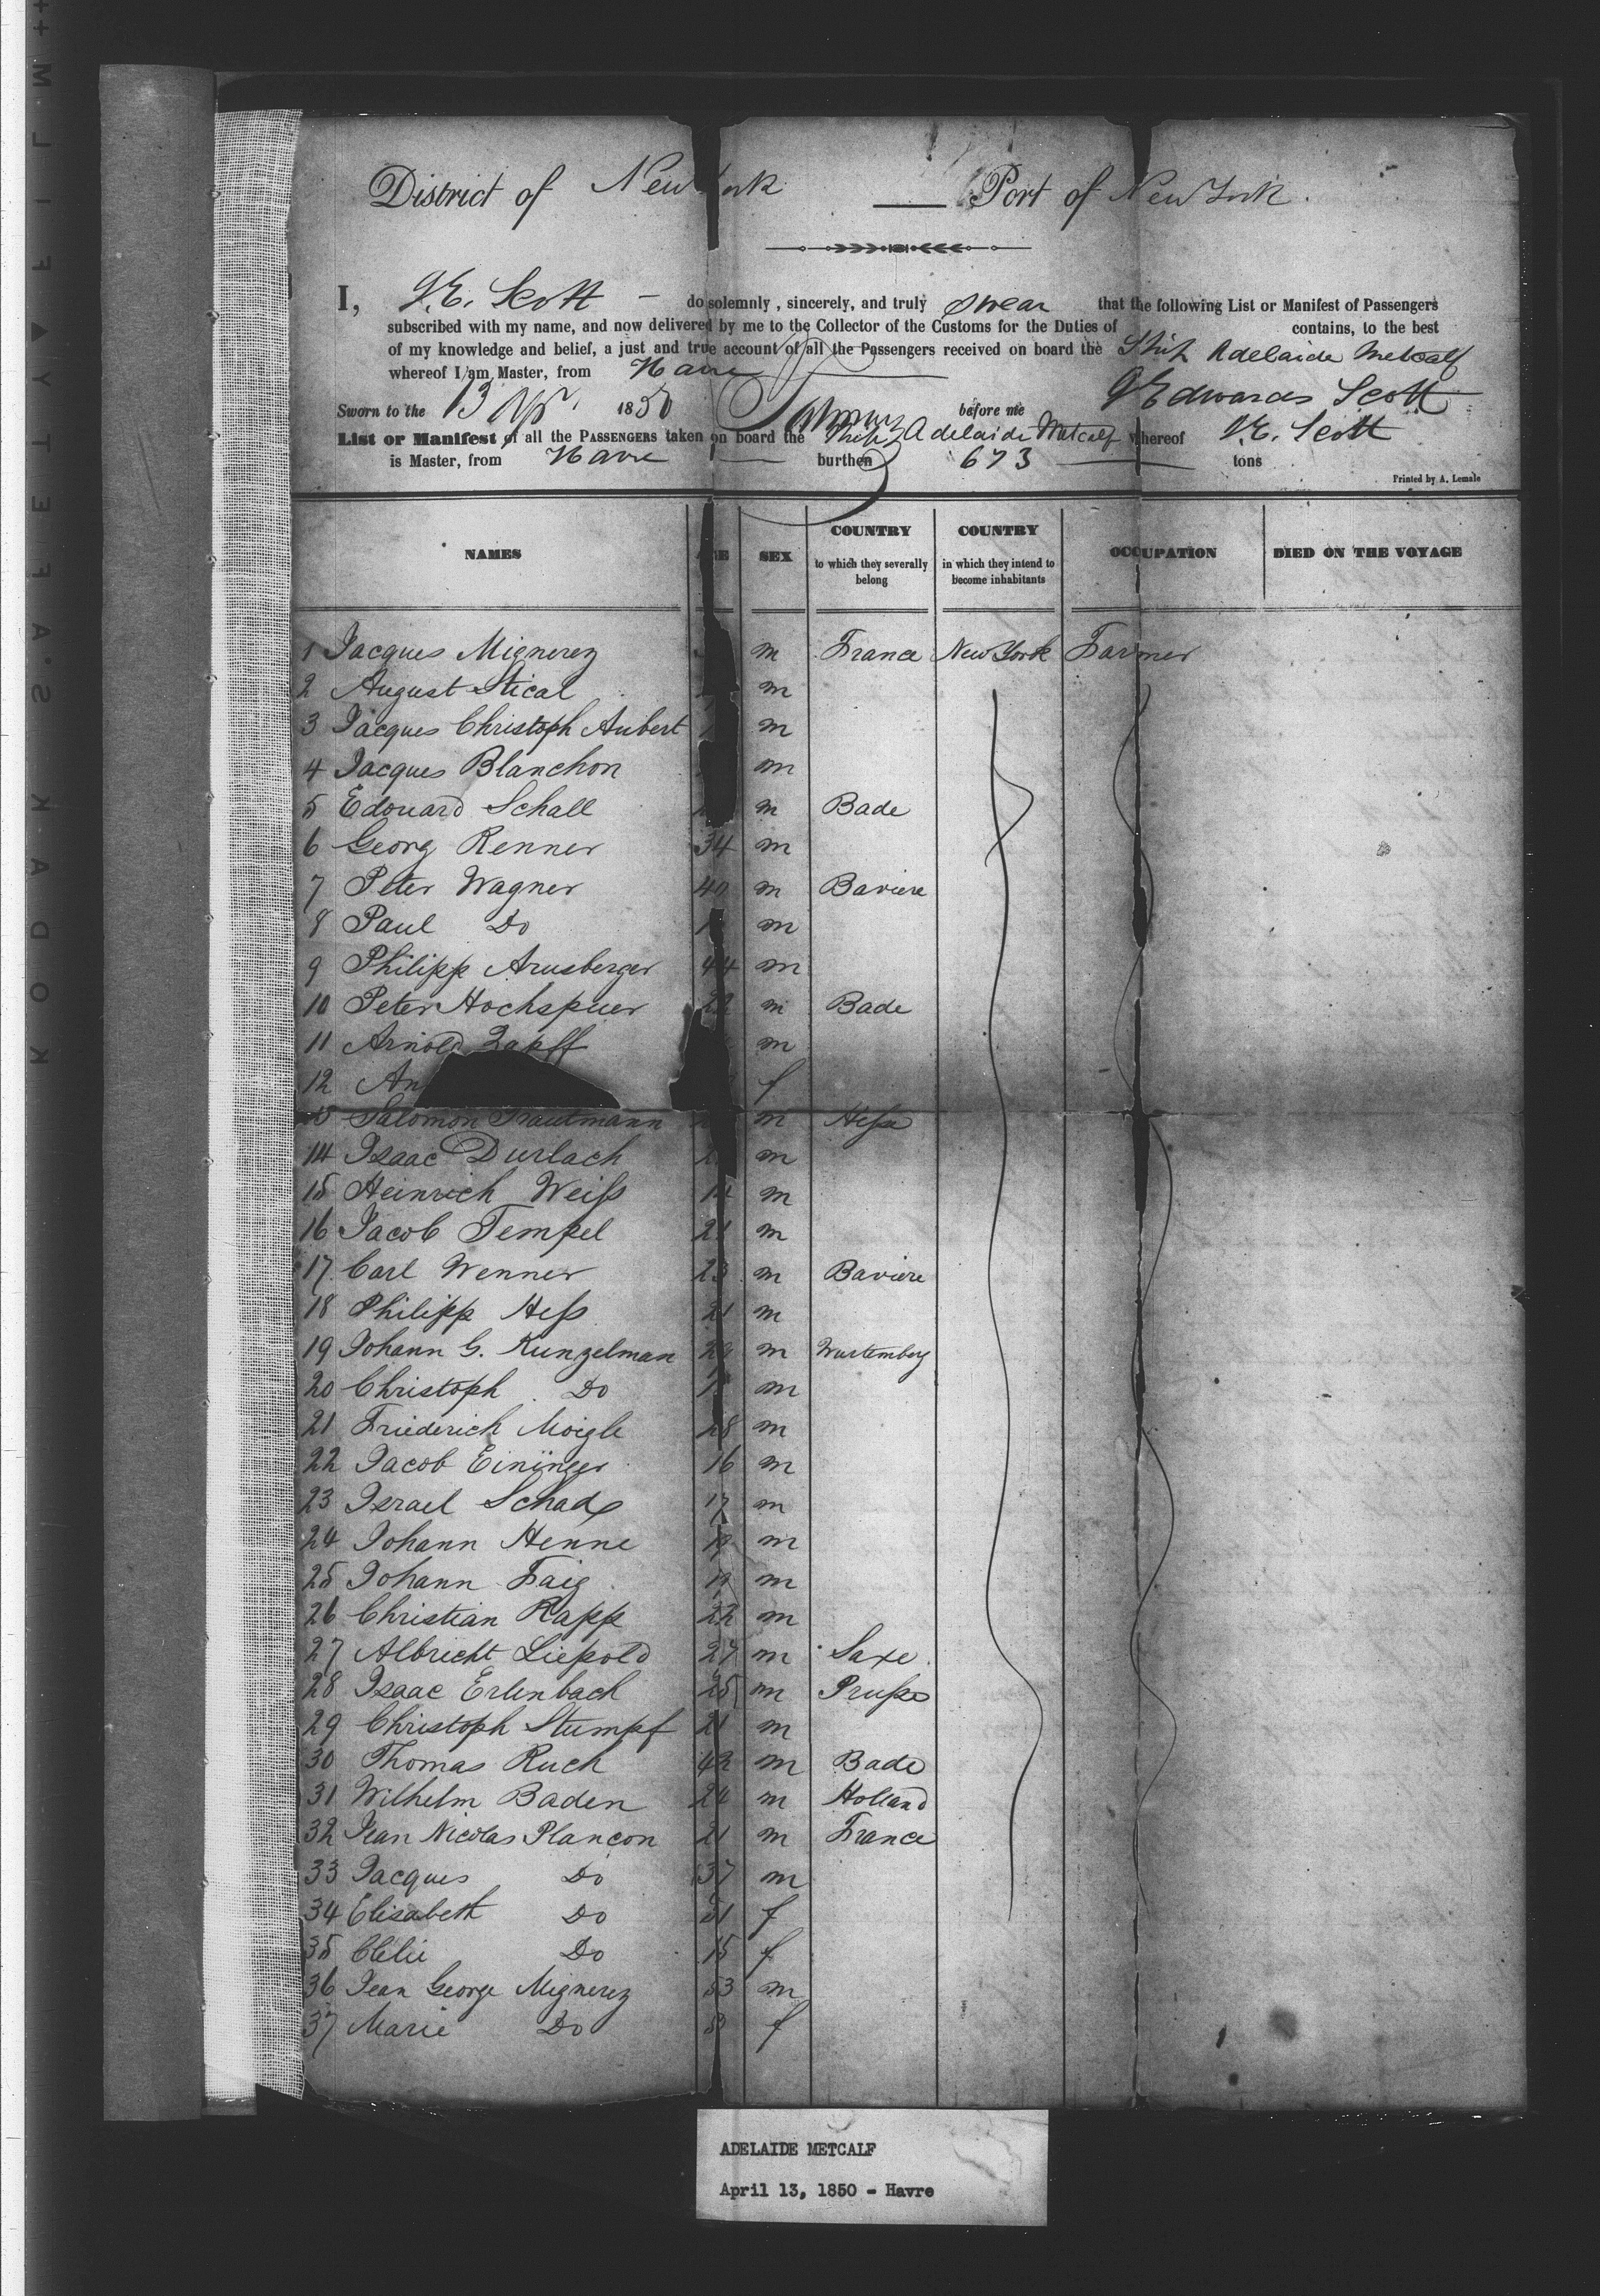 District of New York — Port of New York.
I, J.E. Scott — do solemnly, sincerely, and truly swear that the following List or Manifest of Passengers
subscribed with my name, and now delivered by me to the Collector of the Customs for the Duties of contains, to the best
of my knowledge and belief, a just and true account of all the Passengers received on board the Ship Adelaide Metcalf
whereof I am Master, from Havre
Sworn to the 13 Apr. 1850 before me J Edwards Scott
List or Manifest of all the PASSENGERS taken on board the Ship Adelaide Metcalf whereof J.E. Scott
is Master, from Havre — burthen 673 — tons
Printed by A. Lemale
NAMES AGE SEX COUNTRY to which they severally belong COUNTRY in which they intend to become inhabitants OCCUPATION DIED ON THE VOYAGE
1 Jacques Mignerey m France New York Farmer
2 August Stical m
3 Jacques Christoph Aubert m
4 Jacques Blanchon m
5 Edouard Schall m Bade
6 Georg Renner 34 m
7 Peter Wagner 40 m Baviere
8 Paul Do m
9 Philipp Arusberger 44 m
10 Peter Hochspuer 22 m Bade
11 Arnold Zapff m
12 An f
13 Salomon Trautmann m Hesse
14 Isaac Durlach m
15 Heinrich Weiss 14 m
16 Jacob Tempel 21 m
17 Carl Wenner 23 m Baviere
18 Philipp Hess 21 m
19 Johann G. Kunzelman 29 m Wurtemberg
20 Christoph Do m
21 Friederich Moigle 28 m
22 Jacob Eininger 16 m
23 Israel Schad 17 m
24 Johann Henne 19 m
25 Johann Faig 19 m
26 Christian Rapp 22 m
27 Albricht Liepold 27 m Saxe
28 Isaac Erlenbach 25 m Prusse
29 Christoph Stumpf 21 m
30 Thomas Ruch 42 m Bade
31 Wilhelm Baden 24 m Holland
32 Jean Nicolas Plancon 21 m France
33 Jacques Do 37 m
34 Elisabeth Do 51 f
35 Clelie Do 15 f
36 Jean George Mignerey 53 m
37 Marie Do f
ADELAIDE METCALF
April 13, 1850 - Havre
KODAK·SAFETY▲FILM